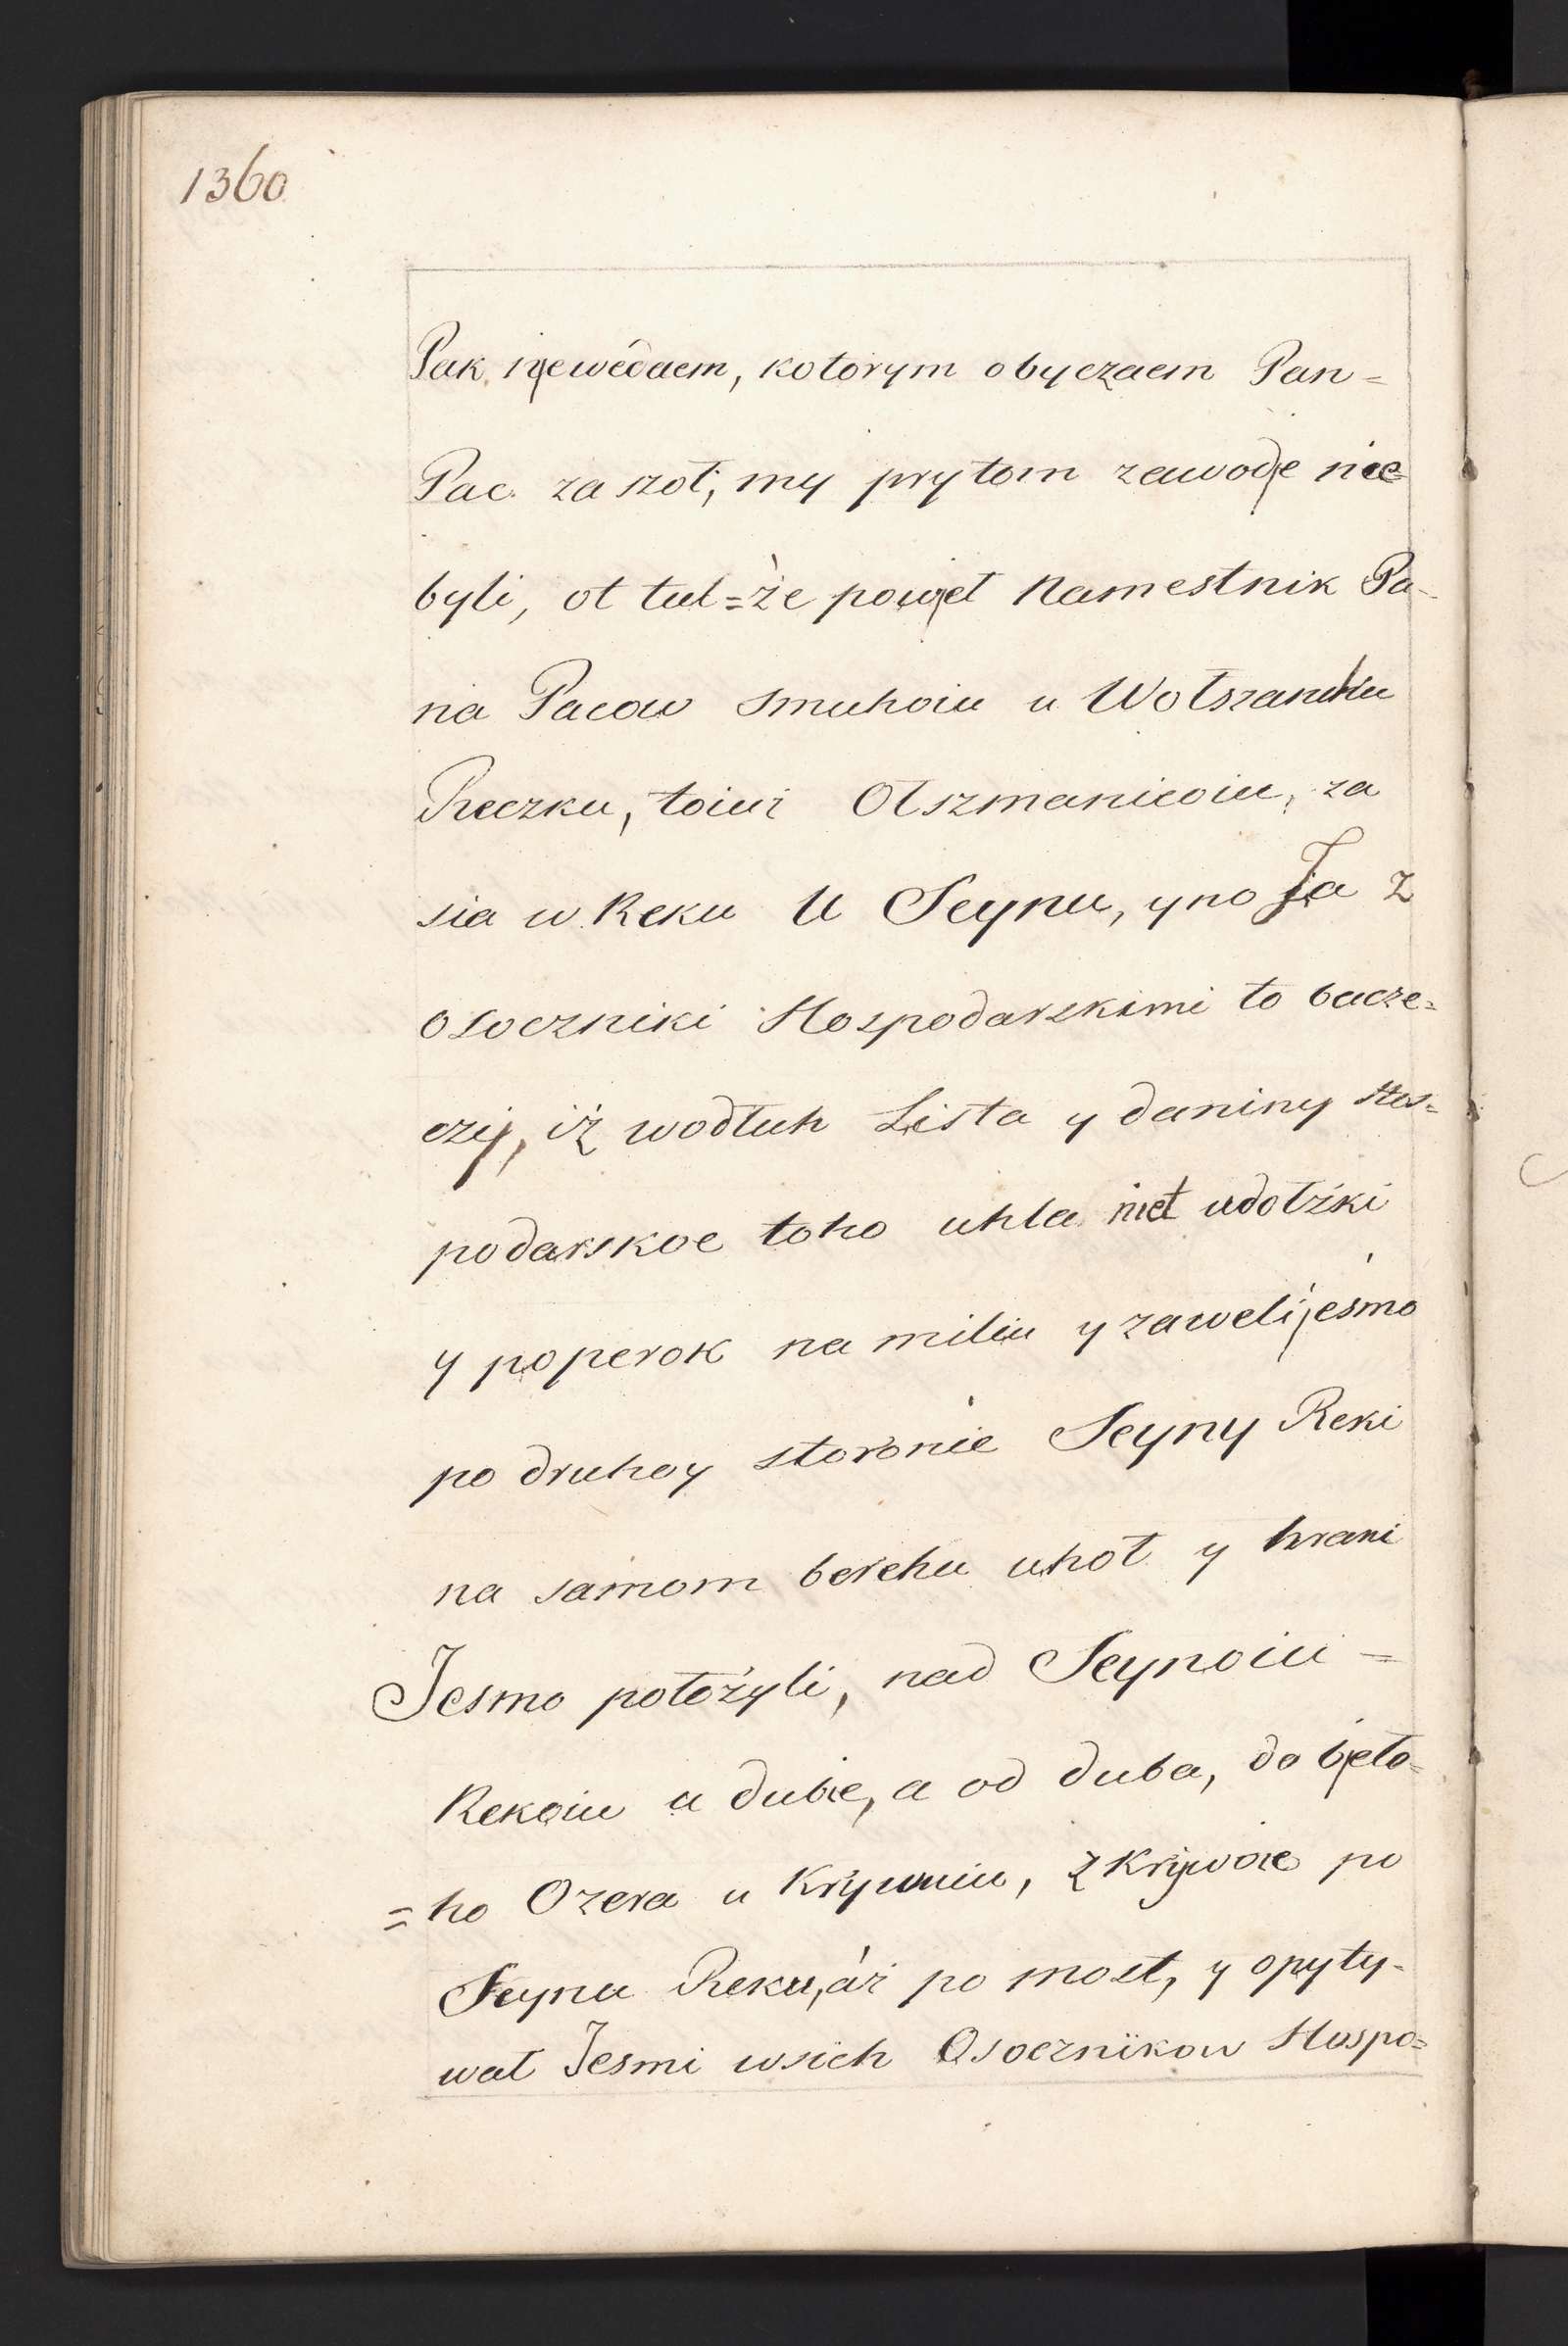 1360
Pak njewedaem, kotorym obyczaem Pan=
Pac zaszoł, my prytom zawodje nie=
byli, ot tul=że powjet Namestnik Pa-
na Pacow smuhoiu u Wołszanku
Reczku, toiuż Olszmanicoiu, za
sia w Reku U Seynu, yno Ja z
Osoczniki Hospodarskimi to bacze=
czy, iż wodłuh Lista y daniny Hos=
podarskoe toho uhla niet udołżki
y poperok na miliu y zaweli jesmo
po druhoy storonie Seyny Reki
na samom berehu uhoł y hrani
Jesmo położyli, nad Seynoiu =
Rekoiu u dubie, a od duba, do bjeło=
=ho Ozera u Krywuiu, z Krywoie po
Seynu Reku, aż po most, y opyty-
wał Jesmi wsich Osocznikow Hospo=